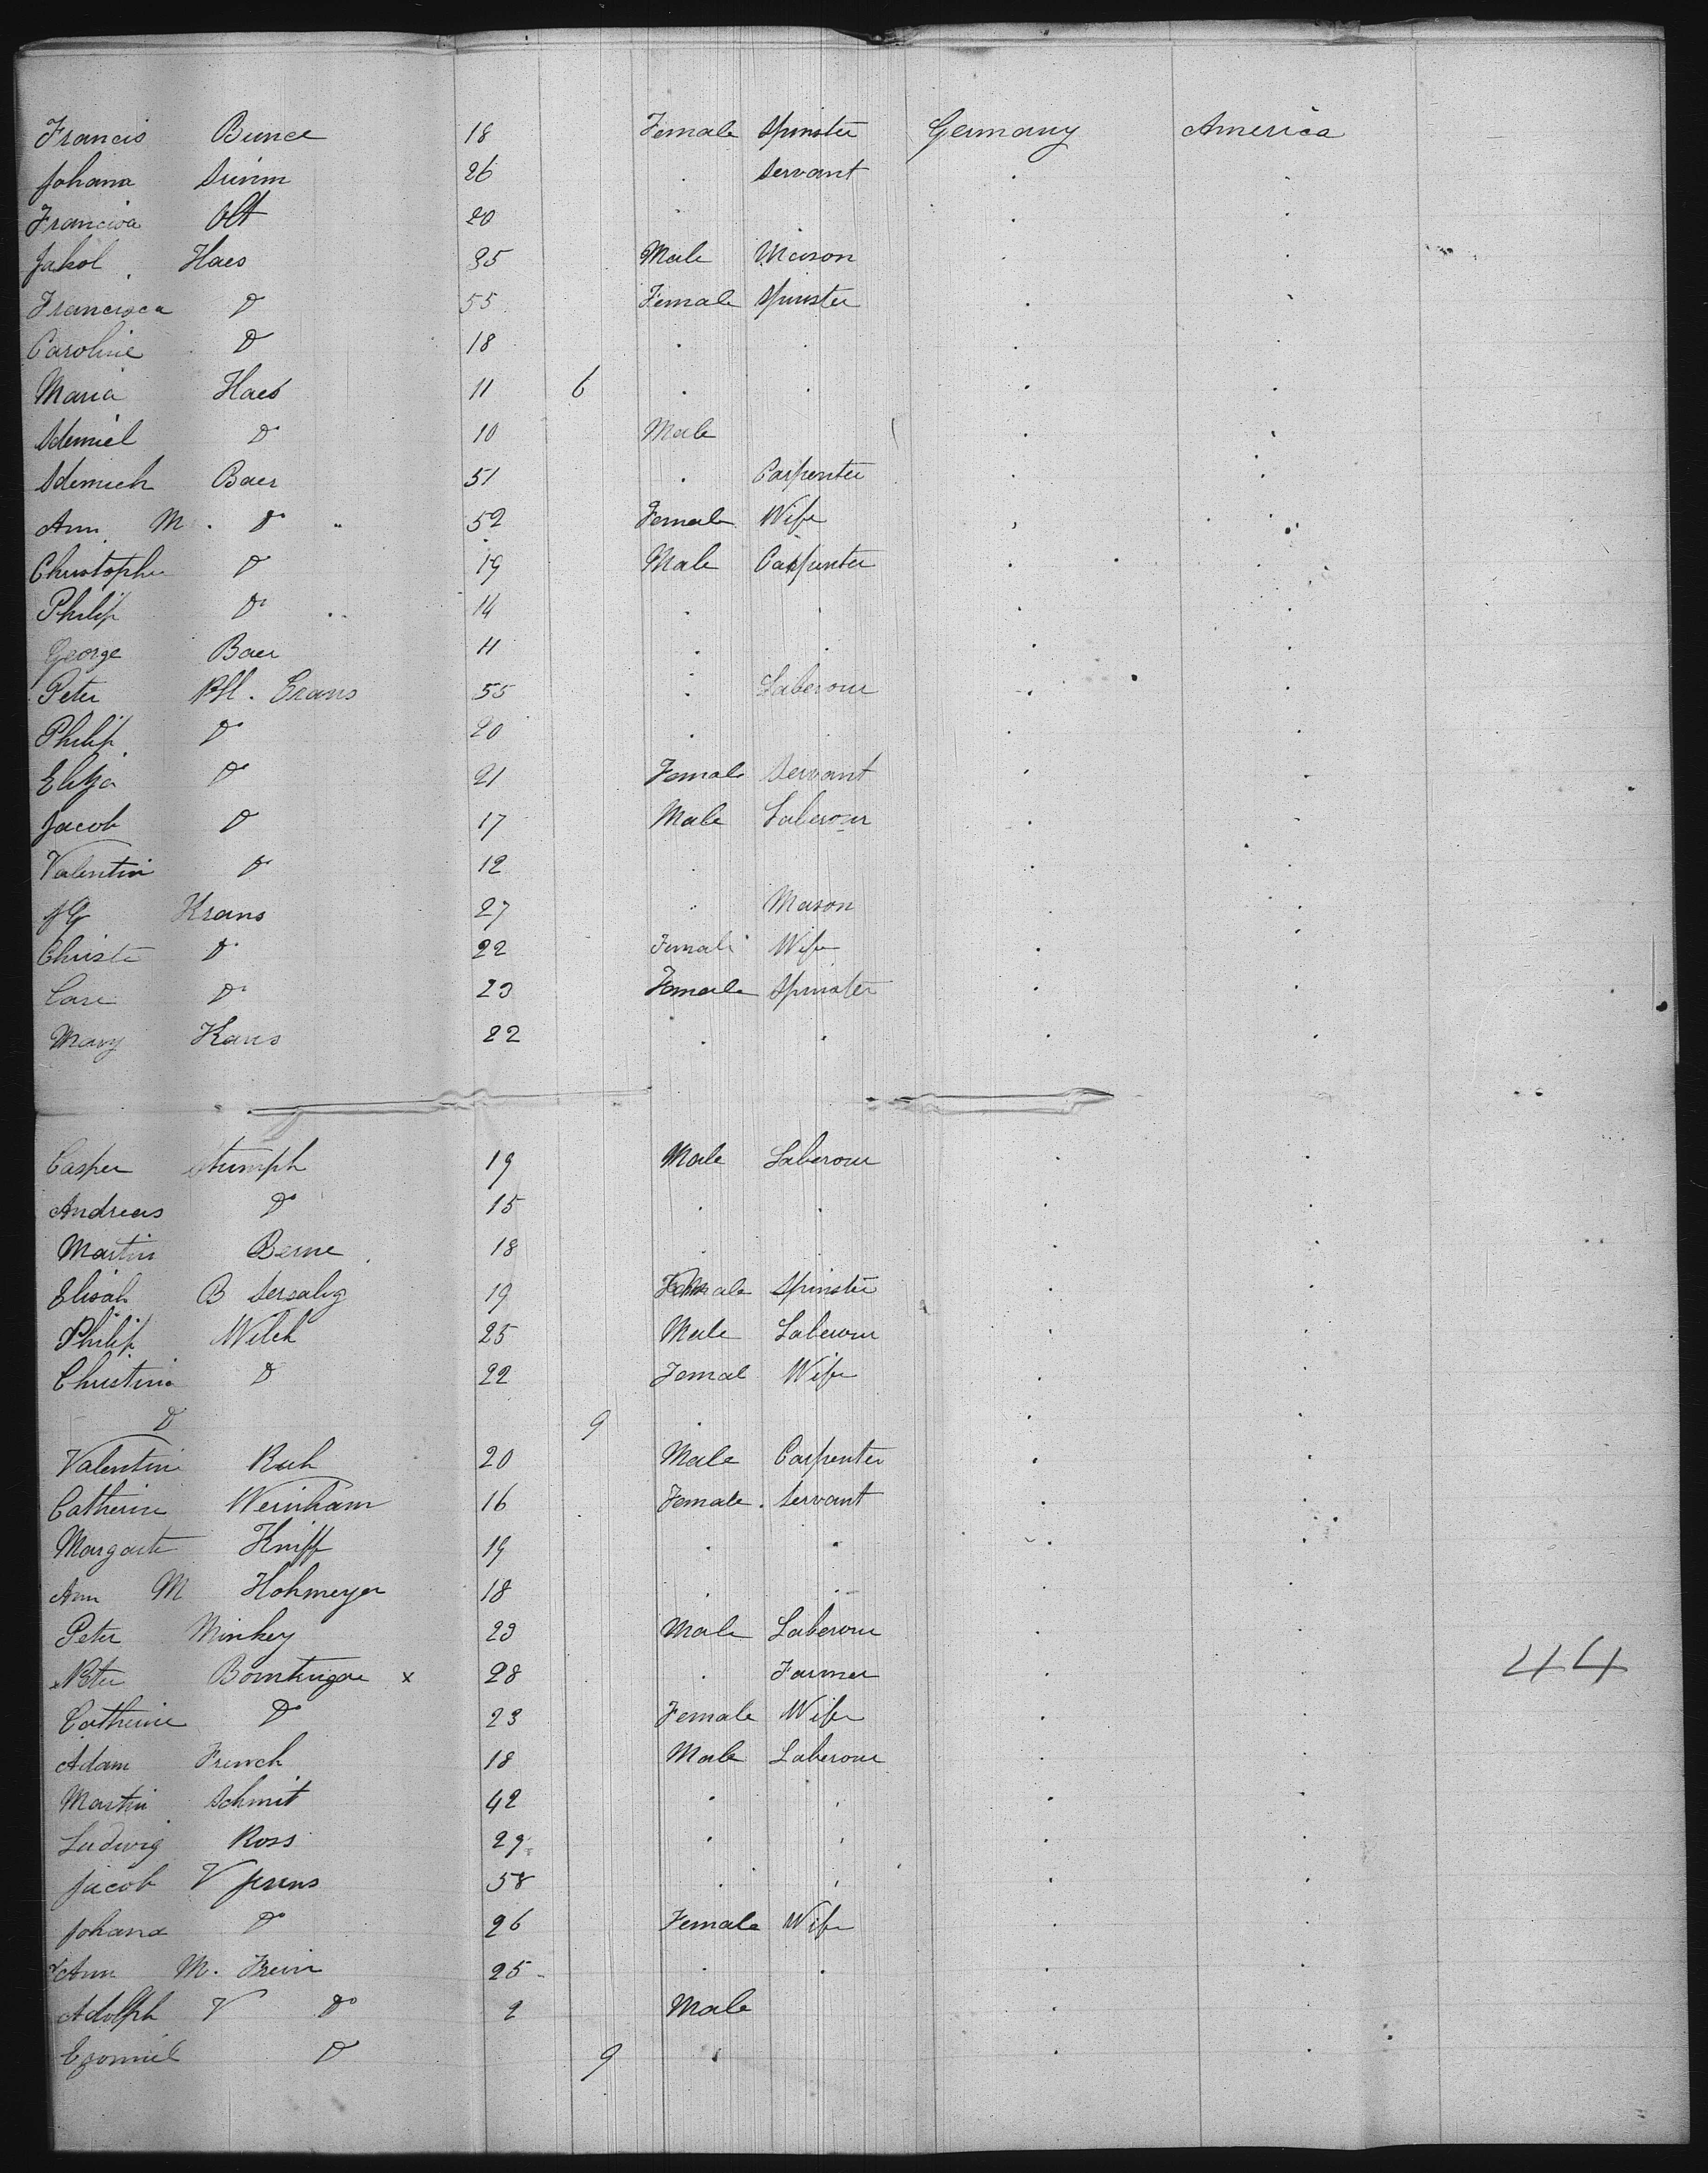 Francis Bunce 18 Female Spinster Germany America
Johana 26 . Servant . .
Francisca Olt 20 . . .
Jakob Haes 35 Male Mason . .
Francisca Do 55 Female Spinster . .
Caroline Do 18 . . . .
Maria Haes 11 6 . . . .
Do 10 Male . .
Baer 51 . Carpenter . .
Ann M. Do 52 Female Wife . .
Christopher Do 19 Male Carpenter . .
Philip Do 14 . . . .
George Baer 11 . . . .
Peter 55 . Laberour . .
Philip Do 20 . . . .
Eliza Do 21 Female Servant . .
Jacob Do 17 Male Laberour . .
Valentin Do 12 . . .
JG Krans 27 " Mason . .
Christe Do 22 Female Wife . .
Do 23 Female Spinster . .
Mary Kans 22 . . . .
Casper Stumph 19 Male Laberour . .
Andreas Do 15 . . . .
Martin Berne 18 . . . .
Elisab B 19 Female Spinster . .
Philip Welch 25 Male Laberour . .
Christina Do 22 Female Wife . .
Do 9 . . .
Valentin Ruh 20 Male Carpenter . .
Catherine Weinham 16 Female . Servant . .
Margarte Kniff 19 . . . .
Ann M Hohmeyer 18 . . . .
Peter Minkey 23 Male Laberour . .
Peter x 28 . Farmer . . 44
Catherine Do 23 Female Wife . .
Adam French 18 Male Laberour . .
Martin Schmit 42 . . . .
Ludwig Ross 29 . . . .
Jacob V 58 . . . .
Johana Do 26 Female Wife . .
Ann M. 25 . . . .
Adolph V Do 2 Male . .
Do 9 . . .